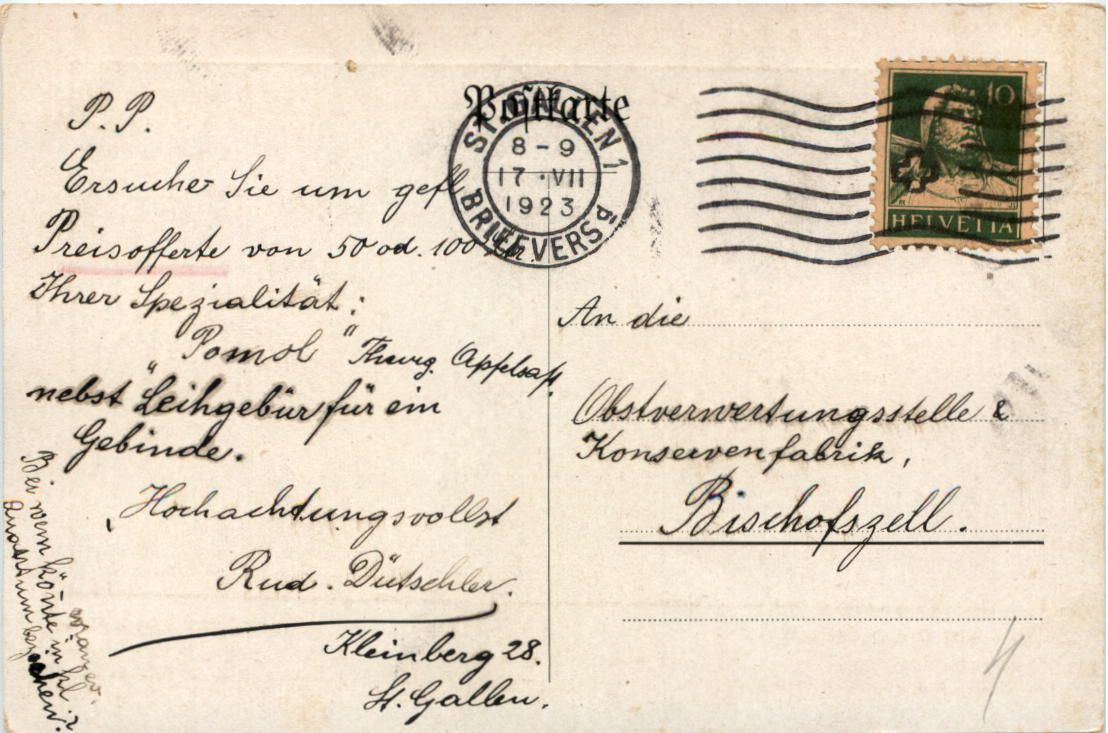 P. P.
Ersuche Sie um gefl.
Preisofferte von 50 od. 100 Ltr
Ihrer Spezialität:
"Pomol" Thurg. Apfelsaft.
nebst Leihgebür für ein
Gebinde.
Hochachtungsvollst
Rud. Dütschler.
Kleinberg 28.
St. Gallen.
Bei wem könte in hl.
quantum beziehen?
Postkarte
ST. GALLEN 1
8-9
17·VII
1923
BRIEFVERSd
10
HELVETIA
An die
Obstverwertungsstelle &
Konservenfabrik,
Bischofszell.
4